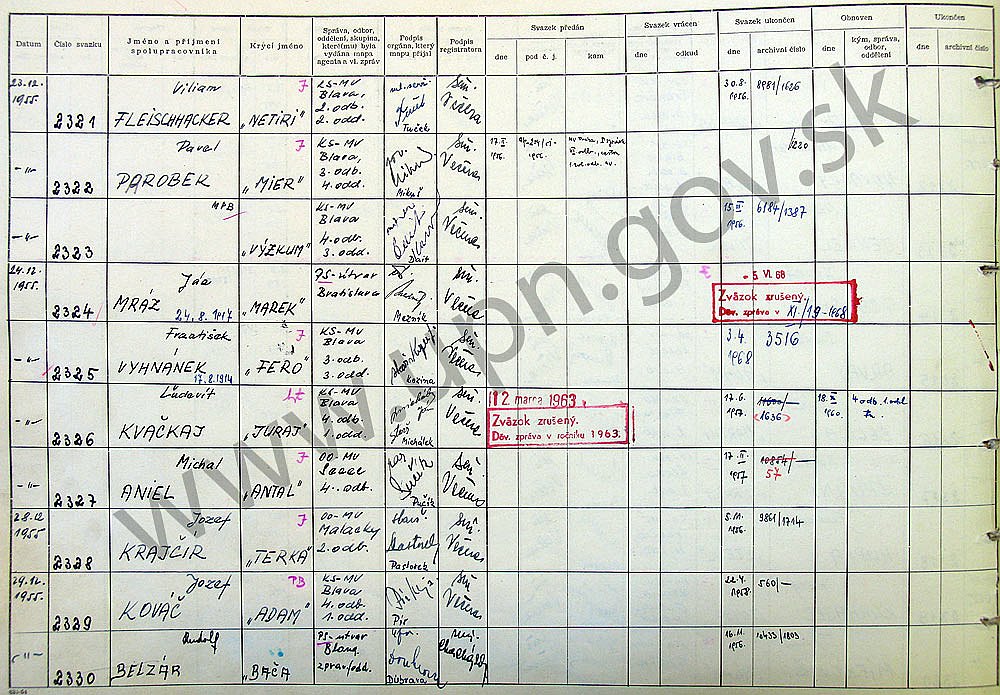 Datum
Číslo svazku
Jméno a příjmení
spolupracovníka
Krycí jméno
Správa, odbor,
oddělení, skupina,
kterému byla
vydána mapa
agenta a vl. zpráv
Podpis
orgána, který
mapu přijal
Podpis
registrátora
Svazek předán
dne
pod č. j.
kam
Svazek vrácen
dne
odkud
Svazek ukončen
dne
archivní číslo
Obnoven
dne
kým, správa,
odbor,
oddělení
Ukončen
dne
archivní číslo
23.12.
1955.
2321
Viliam
FLEISCHHACKER
J
„NETIRI"
KS-MV
Blava,
2. odb.
2. odd.
Tuček
Večera
30.8.
1956.
8981/1626
-„-
2322
Pavel
PAROBEK
J
„MIER"
KS-MV
Blava,
3. odb.
4. odd.
Mikuš
Večera
17.II.
1956.
1220
-„-
2323
MPB
„VÝZKUM"
KS-MV
Blava
4. odb.
3. odd.
Večera
15.III.
1956.
6184/1387
24.12.
1955.
2324
Ján
MRÁZ
24.8.1917
„MAREK"
PS-útvar
Bratislava
Mezník
Večera
- 5 VI. 68
Zväzok zrušený.
Dôv. zpráva v XI./19-1968
-„-
2325
František
VYHNÁNEK
17.8.1914
J
„FERO"
KS-MV
Blava
3. odb.
3. odd.
Kozina
Večera
3.4.
1968
3516
-„-
2326
Ľudovít
KVAČKAJ
„JURAJ"
KS-MV
Blava
4. odb.
1. odd.
Michálek
Večera
12. marca 1963
Zväzok zrušený.
Dôv. zpráva v ročníku 1963.
17.6.
1957.
1636
18.XI
1960.
-„-
2327
Michal
ANIEL
J
„ANTAL"
OO-MV
4. odb.
Pučík
Večera
17.II.
1957
10854/-
57
28.12
1955
2328
Jozef
KRAJČÍR
J
„TERKA"
OO-MV
Malacky
2. odb.
Pastorek
Večera
5.11.
1956.
9861/1714
29.12.
1955.
2329
Jozef
KOVÁČ
PB
„ADAM"
KS-MV
Blava
4. odb.
1. odd.
Pír
Večera
22.4.
1958.
560/-
-„-
2330
Rudolf
BELZÁR
„BAČA"
PS-útvar
Blava
zprav. odd.
Dúbrava
16.11.
1956.
10433/1803
www.upn.gov.sk